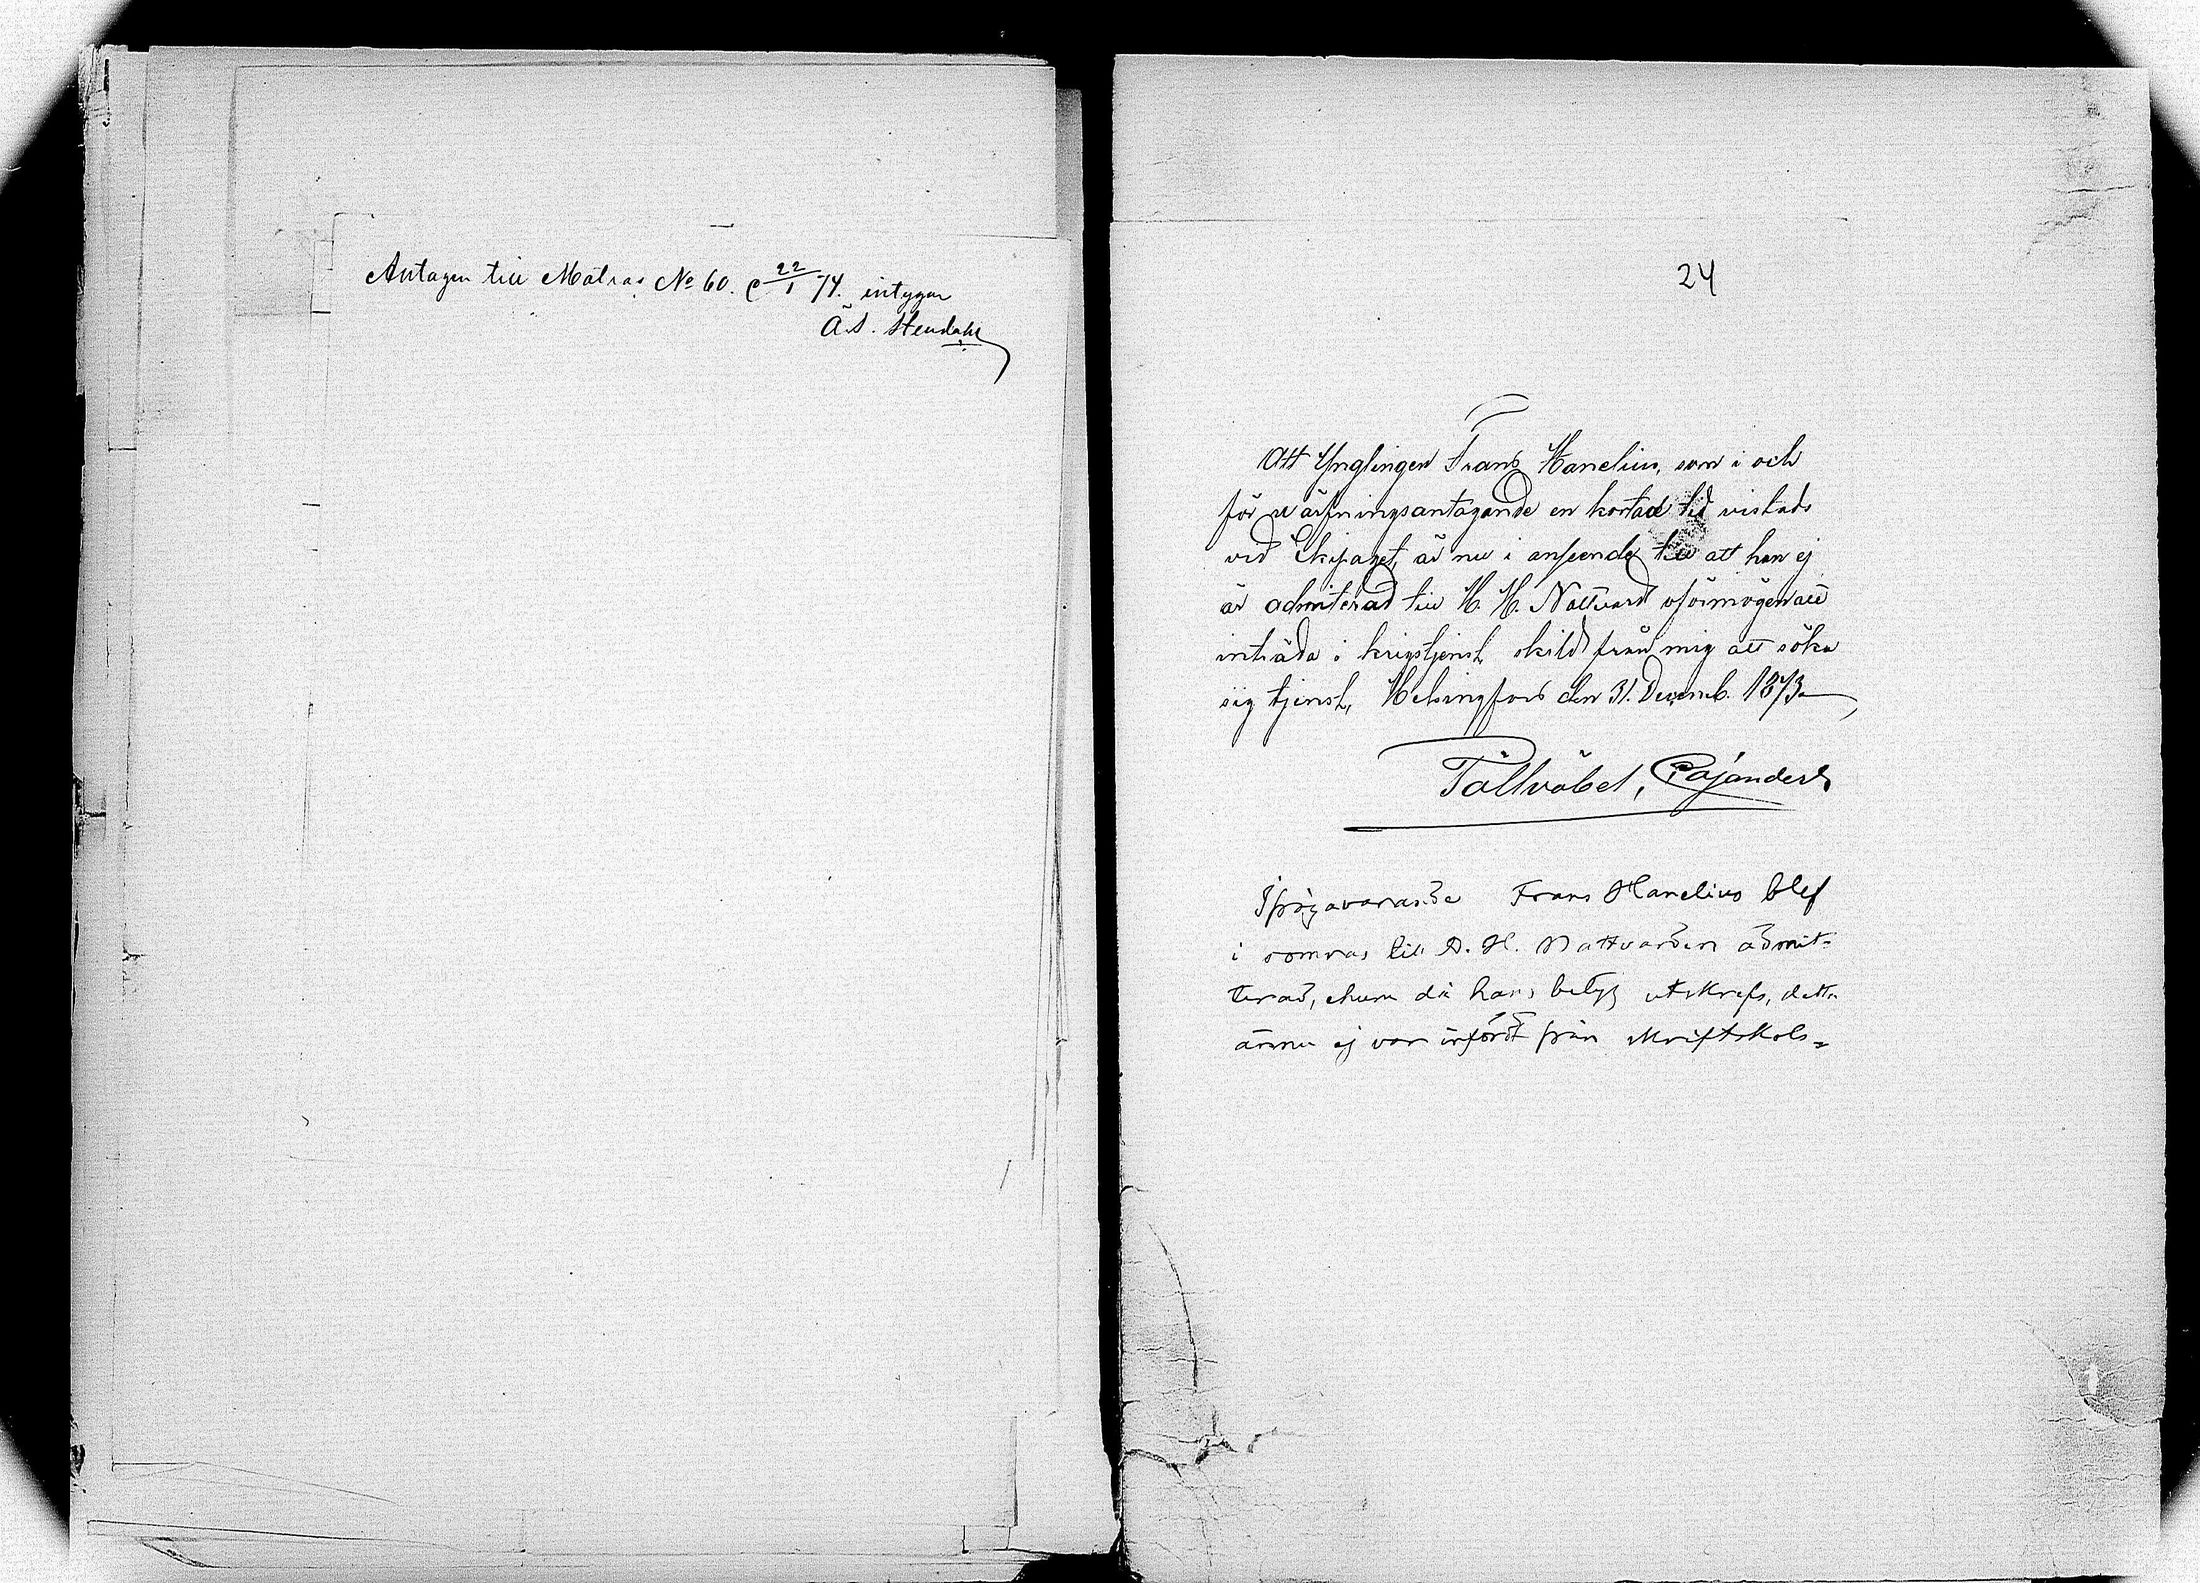 Antagen till Matros No 60. e 22/1 74. intygar
Ä. S. Stendahl
24
Att Ynglingen Frans Hanelius, som i och
för värfningsantagande en kortad tid vistads
vid Ekipaget, är nu i anseende till att han ej
är admiterad till H. H. Nattvard oförmögen att
inträda i krigstjenst, skild från mig att söka
sig tjenst, Helsingfors den 31. Decemb. 1873
Fältväbel, Pajander
Ifrågavarande Frans Hanelius blef
i somras till D. H. Nattvarden admit-
terad, ehuru då hans betyg utskrefs, detta
ännu ej var infördt från skriftskols-